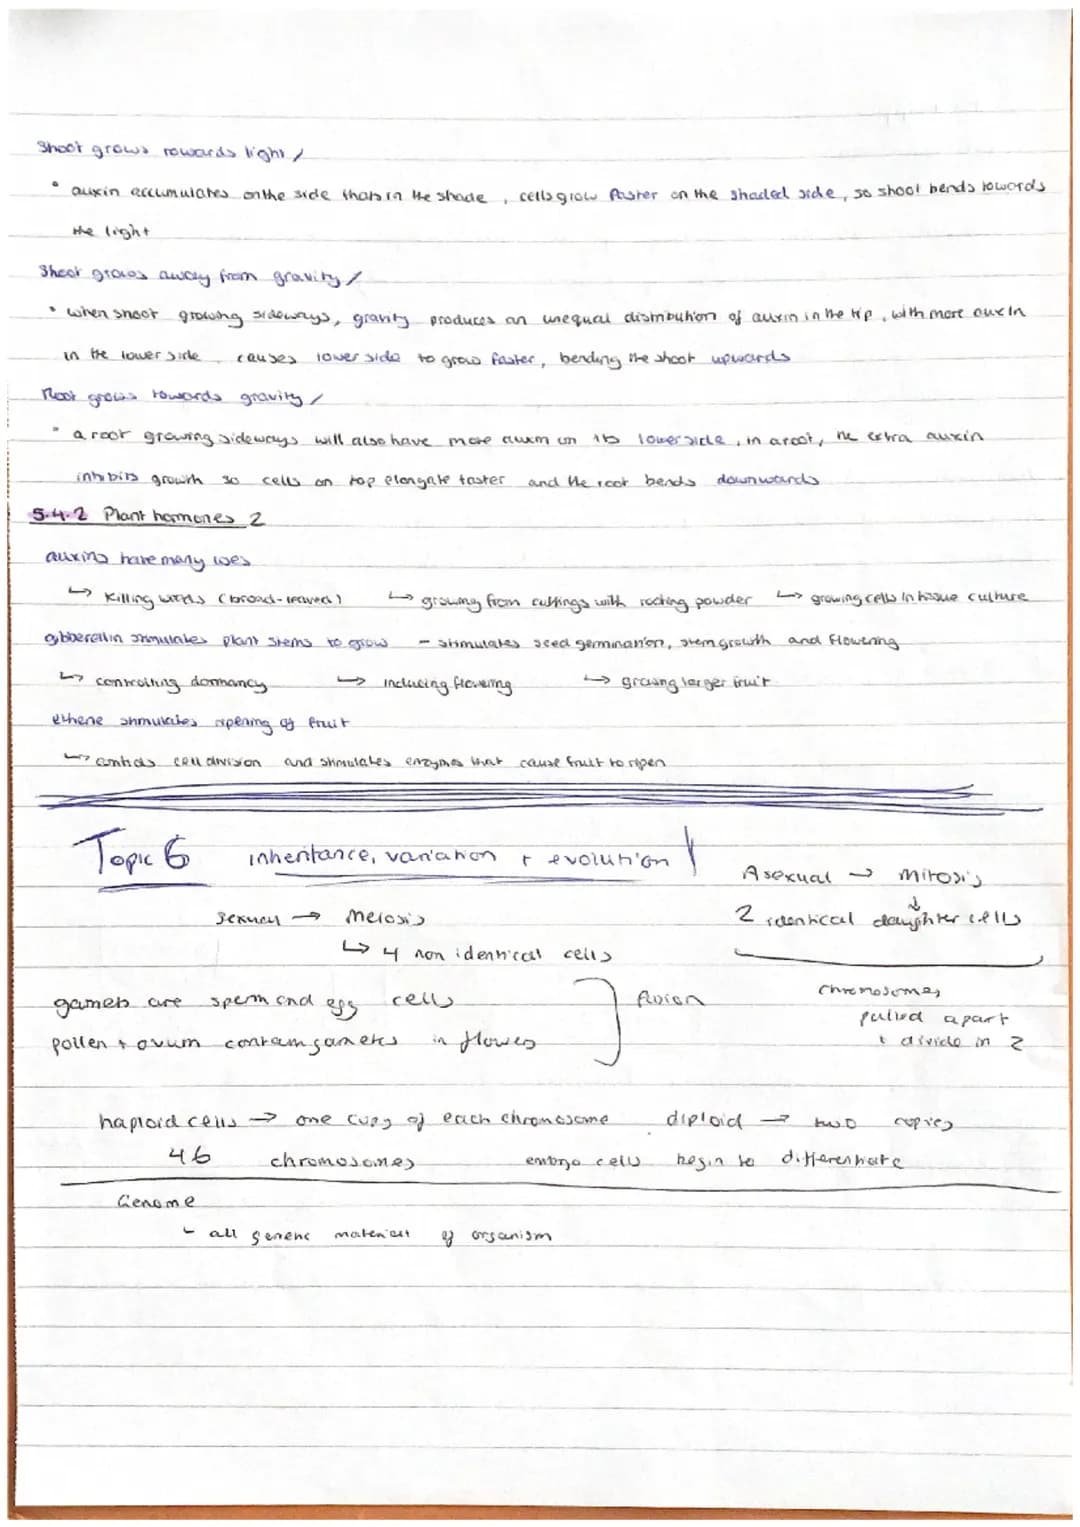 Shoot grows towards light /
• auxin accumulates on the side thats in the shade, cells grow faster on the shaded side, so shoot bends towards
the light
Shoot grows away from gravity /
• when shoot growing sideways, gravity produces an unequal distribution of auxin in the tip, with more auxin
in the lower side causes lower side to grow faster, bending the shoot upwards
Root grows towards gravity /
• a root growing sideways will also have more auxin on its lower side, in a root, the extra auxin
inhibits growth so cells on top elongate faster and the root bends downwards
5.4.2 Plant hormones 2
auxins have many uses
↳ killing weeds (broad-leaved) ↳ growing from cuttings with rooting powder ↳ growing cells in tissue culture
gibberellin stimulates plant stems to grow - stimulates seed germination, stem growth and flowering
↳ controlling dormancy ↳ inducing flowering ↳ growing larger fruit
ethene stimulates ripening of fruit
↳ controls cell division and stimulates enzymes that cause fruit to ripen
Topic 6 inheritance, variation + evolution
Asexual → mitosis
sexual → meiosis
2 identical daughter cells
↳ 4 non identical cells
gametes are sperm and egg cells
fusion
chromosomes
pulled apart
+ divide in 2
pollen + ovum contain gametes in flowers
haploid cells → one copy of each chromosome diploid → two copies
46 chromosomes embryo cells begin to differentiate
Genome
↳ all genetic material of organism